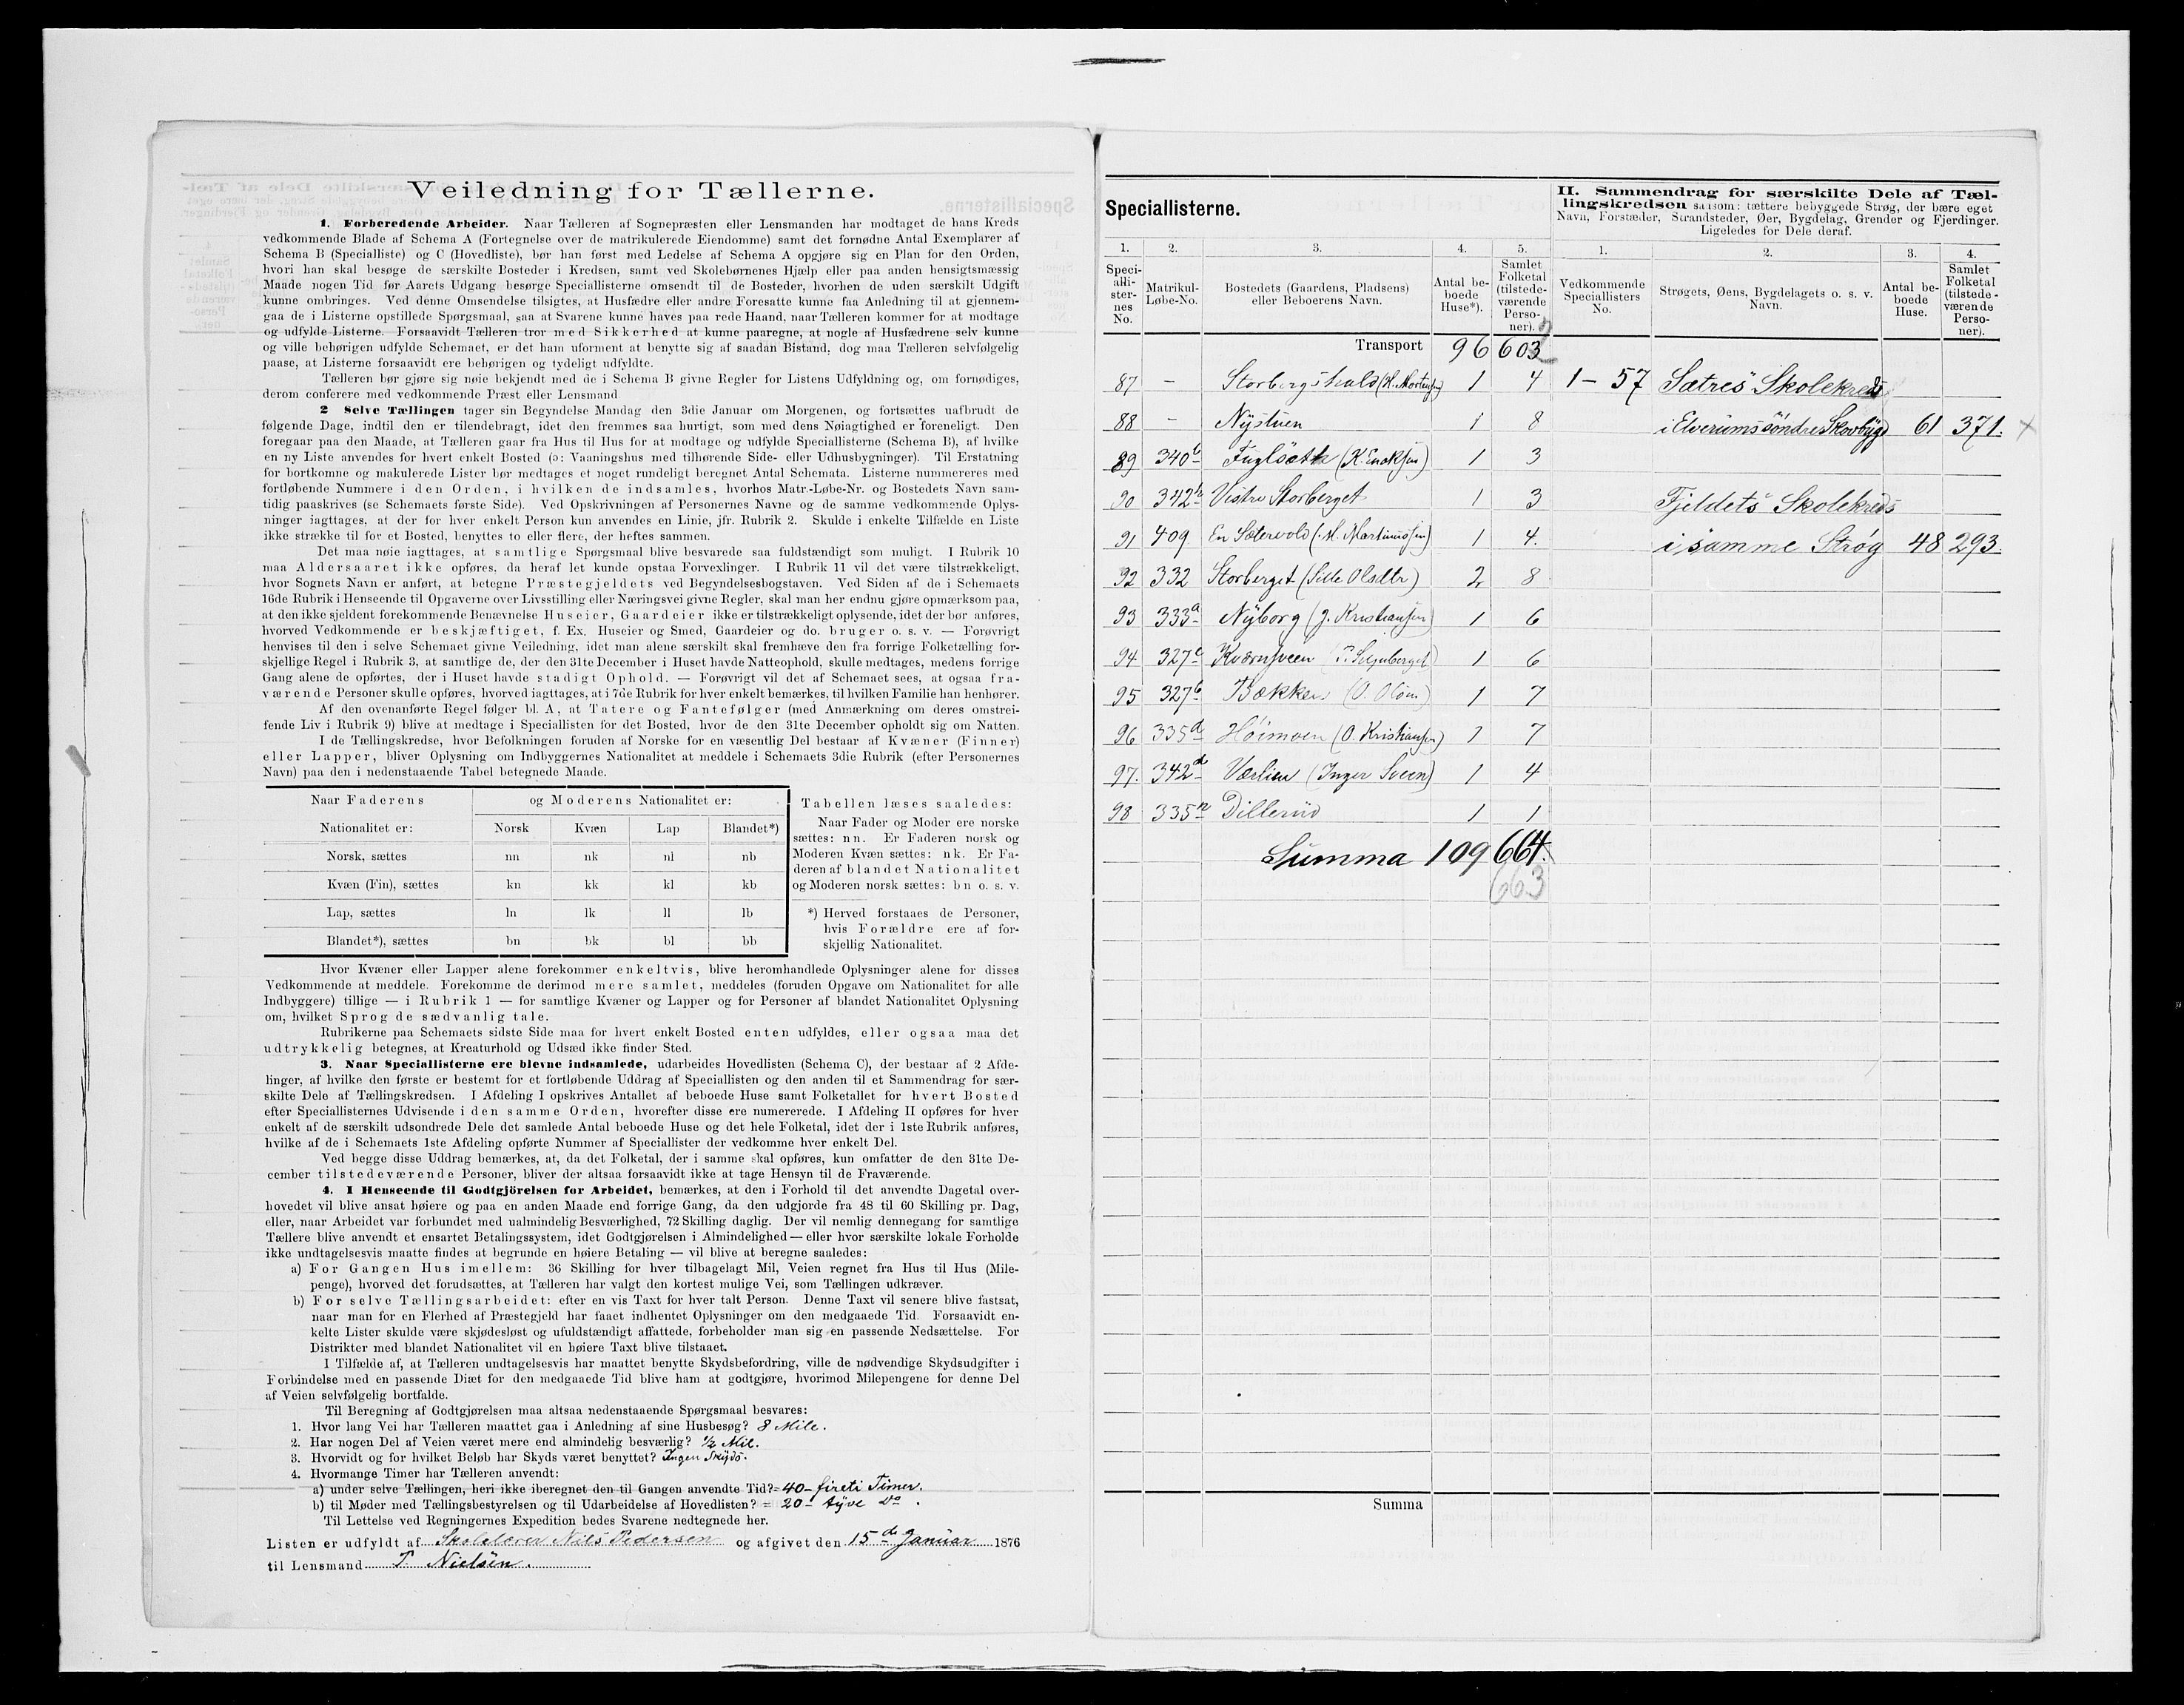 Veiledning for Tællerne.
1. Forberedende Arbeider. Naar Tælleren af Sognepræsten eller Lensmanden har modtaget de hans Kreds
vedkommende Blade af Schema A (Fortegnelse over de matrikulerede Eiendomme) samt det fornødne Antal Exemplarer af
Schema B (Specialliste) og C (Hovedliste), bør han først med Ledelse af Schema A opgjøre sig en Plan for den Orden,
hvori han skal besøge de særskilte Bosteder i Kredsen, samt ved Skolebørnenes Hjælp eller paa anden hensigtsmæssig
Maade nogen Tid før Aarets Udgang besørge Speciallisterne omsendt til de Bosteder, hvorhen de uden særskilt Udgift
kunne ombringes. Ved denne Omsendelse tilsigtes, at Husfædre eller andre Foresatte kunne faa Anledning til at gjennem-
gaa de i Listerne opstillede Spørgsmaal, saa at Svarene kunne haves paa rede Haand, naar Tælleren kommer for at modtage
og udfylde Listerne. Forsaavidt Tælleren tror med Sikkerhed at kunne paaregne, at nogle af Husfædrene selv kunne
og ville behørigen udfylde Schemaet, er det ham uforment at benytte sig af saadan Bistand, dog maa Tælleren selvfølgelig
paase, at Listerne forsaavidt ere behørigen og tydeligt udfyldte.
Tælleren bør gjøre sig nøie bekjendt med de i Schema B givne Regler for Listens Udfyldning og, om fornødiges,
derom conferere med vedkommende Præst eller Lensmand
2 Selve Tællingen tager sin Begyndelse Mandag den 3die Januar om Morgenen, og fortsættes uafbrudt de
følgende Dage, indtil den er tilendebragt, idet den fremmes saa hurtigt, som med dens Nøiagtighed er foreneligt. Den
foregaar paa den Maade, at Tælleren gaar fra Hus til Hus for at modtage og udfylde Speciallisterne (Schema B), af hvilke
en ny Liste anvendes for hvert enkelt Bosted (ɔ: Vaaningshus med tilhørende Side- eller Udhusbygninger). Til Erstatning
for bortkomne og makulerede Lister bør medtages et noget rundeligt beregnet Antal Schemata. Listerne nummereres med
fortløbende Nummere i den Orden, i hvilken de indsamles, hvorhos Matr.-Løbe-Nr. og Bostedets Navn sam-
tidig paaskrives (se Schemaets første Side). Ved Opskrivningen af Personernes Navne og de samme vedkommende Oplys-
ninger iagttages, at der for hver enkelt Person kun anvendes en Linie, jfr. Rubrik 2. Skulde i enkelte Tilfælde en Liste
ikke strække til for et Bosted, benyttes to eller flere, der heftes sammen.
Det maa nøie iagttages, at samtlige Spørgsmaal blive besvarede saa fuldstændigt som muligt. I Rubrik 10
maa Aldersaaret ikke opføres, da heraf let kunde opstaa Forvexlinger. I Rubrik 11 vil det være tilstrækkeligt,
hvor Sognets Navn er anført, at betegne Præstegjeldets ved Begyndelsesbogstaven. Ved Siden af de i Schemaets
16de Rubrik i Henseende til Opgaverne over Livsstilling eller Næringsvei givne Regler, skal man her endnu gjøre opmærksom paa,
at den ikke sjeldent forekommende Benævnelse Huseier, Gaardeier ikke er tilstrækkeligt oplysende, idet der bør anføres,
hvorved Vedkommende er beskjæftiget, f. Ex. Huseier og Smed, Gaardeier og do. bruger o. s. v. — Forøvrigt
henvises til den i selve Schemaet givne Veiledning, idet man alene særskilt skal fremhæve den fra forrige Folketælling for-
skjellige Regel i Rubrik 3, at samtlige de, der den 31te December i Huset havde Natteophold, skulle medtages, medens forrige
Gang alene de opførtes, der i Huset havde stadigt Ophold. — Forøvrigt vil det af Schemaet sees, at ogsaa fra-
værende Personer skulle opføres, hvorved iagttages, at i 7de Rubrik for hver enkelt bemærkes, til hvilken Familie han henhører.
Af den ovenanførte Regel følger bl. A, at Tatere og Fantefølger (med Anmærkning om deres omstrei-
fende Liv i Rubrik 9) blive at medtage i Speciallisten for det Bosted, hvor de den 31te December opholdt sig om Natten.
I de Tællingskredse, hvor Befolkningen foruden af Norske for en væsentlig Del bestaar af Kvæner (Finner)
eller Lapper, bliver Oplysning om Indbyggernes Nationalitet at meddele i Schemaets 3die Rubrik (efter Personernes
Navn) paa den i nedenstaaende Tabel betegnede Maade.
Naar Faderens og Moderens Nationalitet er:
Nationalitet er: Norsk Kvæn Lap Blandet*)
Norsk, sættes nn nk nl nb
Kvæn (Fin), sættes kn kk kl kb
Lap, sættes ln lk ll lb
Blandet*), sættes bn bk bl bb
Tabellen læses saaledes:
Naar Fader og Moder ere norske
sættes: nn. Er Faderen norsk og
Moderen Kvæn sættes: nk. Er Fa-
deren af blandet Nationalitet
og Moderen norsk sættes: bn o. s. v.
*) Herved forstaaes de Personer,
hvis Forældre ere af for-
skjellig Nationalitet.
Hvor Kvæner eller Lapper alene forekommer enkeltvis, blive heromhandlede Oplysninger alene for disses
Vedkommende at meddele. Forekomme de derimod mere samlet, meddeles (foruden Opgave om Nationalitet for alle
Indbyggere) tillige — i Rubrik 1 — for samtlige Kvæner og Lapper og for Personer af blandet Nationalitet Oplysning
om, hvilket Sprog de sædvanlig tale.
Rubrikerne paa Schemaets sidste Side maa for hvert enkelt Bosted enten udfyldes, eller ogsaa maa det
udtrykkelig betegnes, at Kreaturhold og Udsæd ikke finder Sted.
3. Naar Speciallisterne ere blevne indsamlede, udarbeides Hovedlisten (Schema C), der bestaar af 2 Afde-
linger, af hvilke den første er bestemt for et fortløbende Uddrag af Speciallisten og den anden til et Sammendrag for sær-
skilte Dele af Tællingskredsen. I Afdeling I opskrives Antallet af beboede Huse samt Folketallet for hvert Bosted
efter Speciallisternes Udvisende i den samme Orden, hvorefter disse ere numererede. I Afdeling II opføres for hver
enkelt af de særskilt udsondrede Dele det samlede Antal beboede Huse og det hele Folketal, idet der i 1ste Rubrik anføres,
hvilke af de i Schemaets 1ste Afdeling opførte Nummer af Speciallister der vedkomme hver enkelt Del.
Ved begge disse Uddrag bemærkes, at, da det Folketal, der i samme skal opføres, kun omfatter de den 31te De-
cember tilstedeværende Personer, bliver der altsaa forsaavidt ikke at tage Hensyn til de Fraværende.
4. I Henseende til Godtgjörelsen for Arbeidet, bemærkes, at den i Forhold til det anvendte Dagetal over-
hovedet vil blive ansat høiere og paa en anden Maade end forrige Gang, da den udgjorde fra 48 til 60 Skilling pr. Dag,
eller, naar Arbeidet var forbundet med ualmindelig Besværlighed, 72 Skilling daglig. Der vil nemlig dennegang for samtlige
Tællere blive anvendt et ensartet Betalingssystem, idet Godtgjørelsen i Almindelighed — eller hvor særskilte lokale Forholde
ikke undtagelsesvis maatte findes at begrunde en høiere Betaling — vil blive at beregne saaledes:
a) For Gangen Hus imellem: 36 Skilling for hver tilbagelagt Mil, Veien regnet fra Hus til Hus (Mile-
penge), hvorved det forudsættes, at Tælleren har valgt den kortest mulige Vei, som Tællingen udkræver.
b) For selve Tællingsarbeidet: efter en vis Taxt for hver talt Person. Denne Taxt vil senere blive fastsat,
naar man for en Flerhed af Præstegjeld har faaet indhentet Oplysninger om den medgaaede Tid. Forsaavidt en-
kelte Lister skulde være skjødesløst og ufuldstændigt affattede, forbeholder man sig en passende Nedsættelse. For
Distrikter med blandet Nationalitet vil en høiere Taxt blive tilstaaet.
I Tilfælde af, at Tælleren undtagelsesvis har maattet benytte Skydsbefordring, ville de nødvendige Skydsudgifter i
Forbindelse med en passende Diæt for den medgaaede Tid blive ham at godtgjøre, hvorimod Milepengene for denne Del
af Veien selvfølgelig bortfalde.
Til Beregning af Godtgjørelsen maa altsaa nedenstaaende Spørgsmaal besvares:
1. Hvor lang Vei har Tælleren maattet gaa i Anledning af sine Husbesøg? 8 Mile.
2. Har nogen Del af Veien været mere end almindelig besværlig? ½ Mil.
3. Hvorvidt og for hvilket Beløb har Skyds været benyttet? Ingen Skyds.
4. Hvormange Timer har Tælleren anvendt:
a) under selve Tællingen, heri ikke iberegnet den til Gangen anvendte Tid? = 40 – fireti Timer.
b) til Møder med Tællingsbestyrelsen og til Udarbeidelse af Hovedlisten? = 20 – tyve do.
Til Lettelse ved Regningernes Expedition bedes Svarene nedtegnede her.
Listen er udfyldt af Skolelærer Nils Pedersen og afgivet den 15de Januar 1876
til Lensmand T. Nielsen.
Speciallisterne.
II. Sammendrag for særskilte Dele af Tæl-
lingskredsen saasom: tættere bebyggede Strøg, der bære eget
Navn, Forstæder, Strandsteder, Øer, Bygdelag, Grender og Fjerdinger.
Ligeledes for Dele deraf.
1. 2. 3. 4. 5. 1. 2. 3. 4.
Speci-alli-ster-nes No. Matrikul-Løbe-No. Bostedets (Gaardens, Pladsens) eller Beboerens Navn. Antal be-boede Huse*). Samlet Folketal (tilstede-værende Perso-ner). Vedkommende Speciallisters No. Strøgets, Øens, Bygdelagets o. s. v. Navn. Antal be-boede Huse. Samlet Folketal (tilstede-værende Perso-ner).
Transport 96 603 2
87 – Storbergshald (H. Mortensen) 1 4 1 – 57 Sætres Skolekreds
88 – Nystuen 1 8 i Elverums söndre Skovbygd 61 371. ×
89 340b Fuglsæth (K. Enoksen) 1 3
90 342b Vistre Storberget 1 3 Fjeldets Skolekreds
91 409 En Sætervold (M. Martinussen) 1 4. i samme Strøg 48 293.
92 332 Storberget (Sille Olsdtr) 2 8
93 333a Nyborg (J. Kristiansen) 1 6
94 327c Kværnsveen 1 6
95 327b Bækken 1 7
96 335d Höimoen (O. Kristiansen) 1 7
97. 342d Værlien (Inger Sveen) 1 4
98 335n Dillerud 1 1
Summa 109 664.
663
Summa